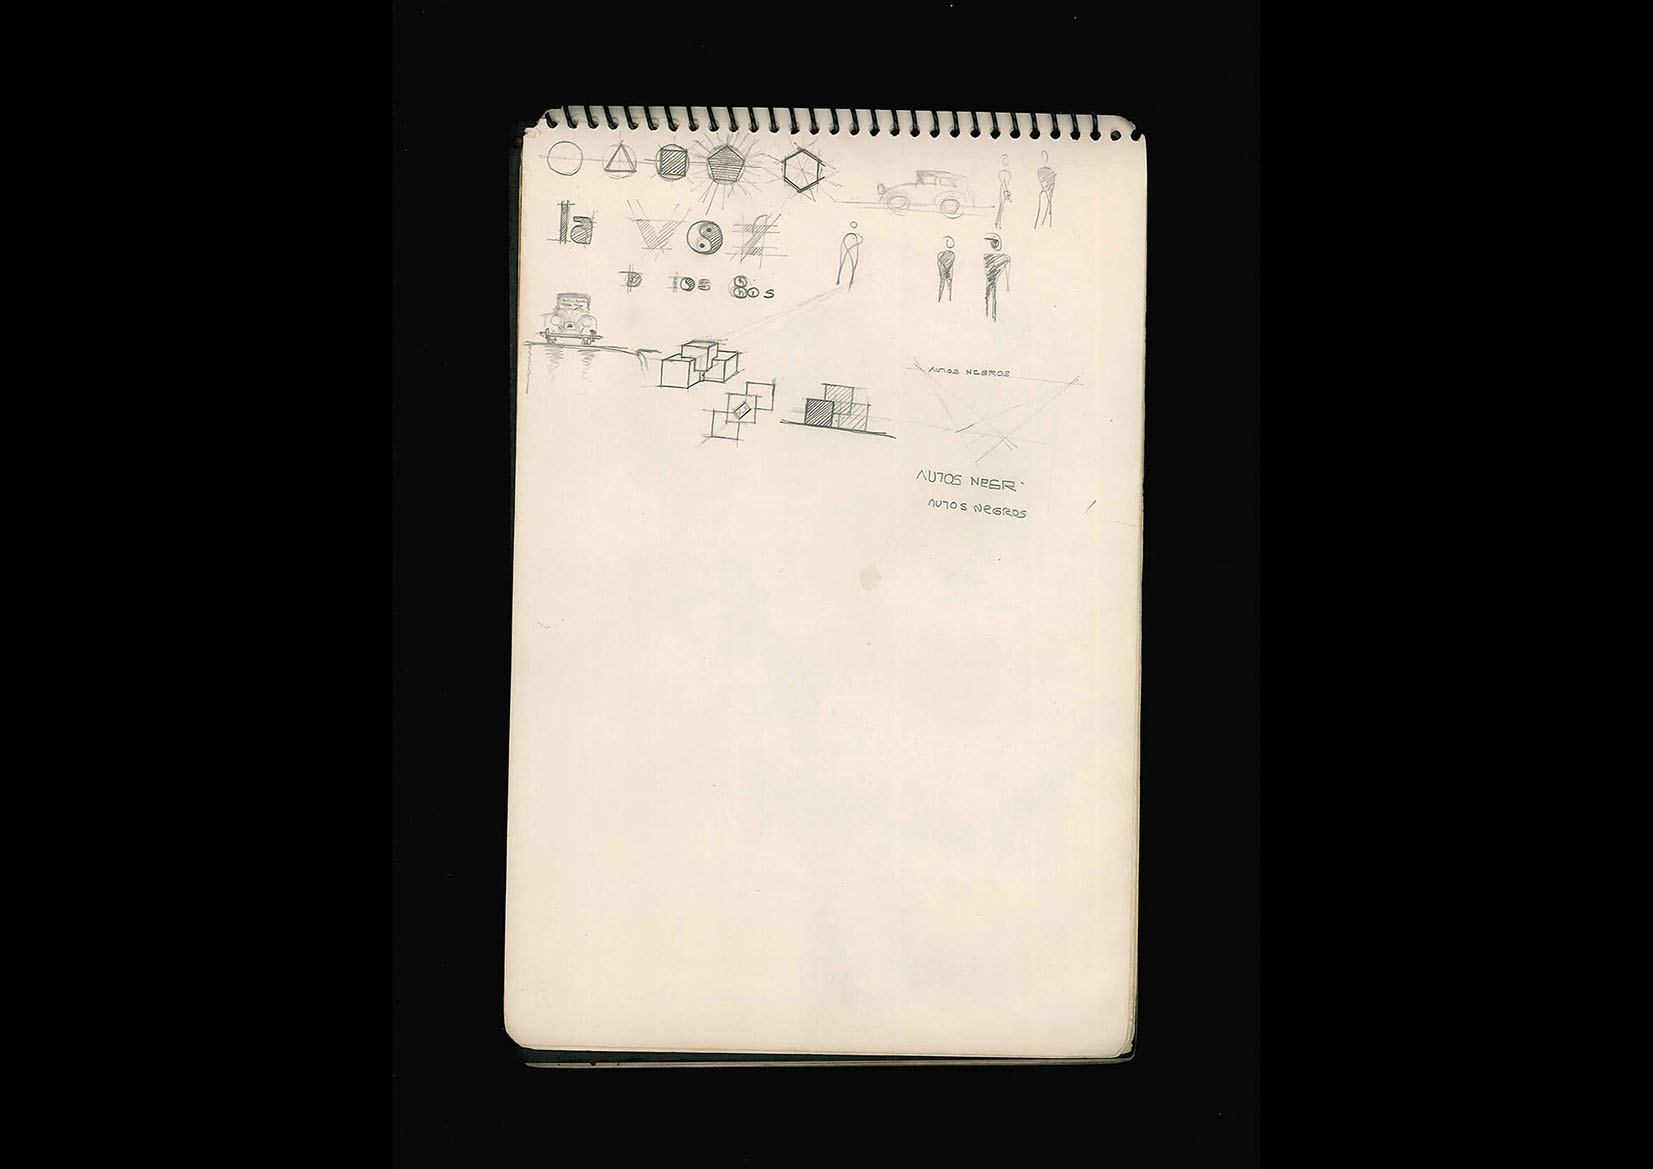 la voz
D los 80s
AUTOS NEGROS
AUTOS NEGR
AUTOS NEGROS